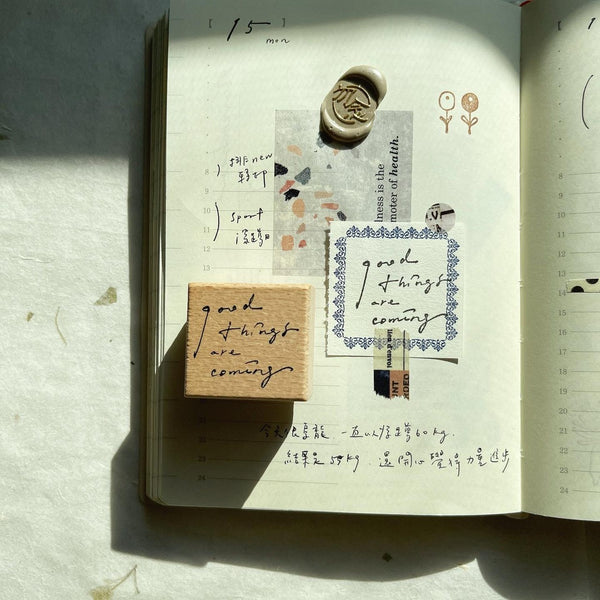 [ 15 ]
mon
初
lness is the
moter of health.
) 排 new
章印
) sport
深蹲
8
9
10
11
12
13
good
things
are
coming
good
things
are
coming
今天很 一直以為深蹲60kg.
結果是55kg. 還開心覺得力量進步
21
23
24
8
9
10
11
12
13
14
15
16
17
18
19
20
21
22
23
24